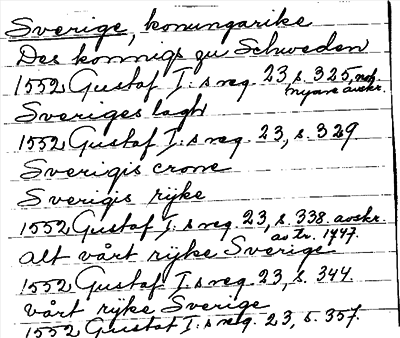 Sverige, konungarike
Des konnigs zu Schweden
1552 Gustaf I:s reg. 23, s. 325, not.
nyare avskr.
Sveriges lagh
1552 Gustaf I:s reg. 23, s. 329
Sverigis crone
Sverigis rijke
1552 Gustaf I:s reg. 23, s. 338. avskr.
av tr. 1747.
alt vårt rijke Sverige
1552 Gustaf I:s reg. 23, s. 344.
vårt rijke Sverige
1552 Gustaf I:s reg. 23, s. 357.